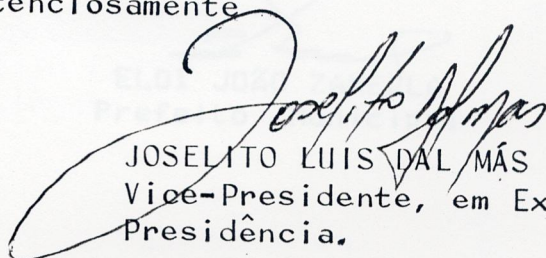 enciosamente
Joselito Dalmas
JOSELITO LUIS DAL MÁS
Vice-Presidente, em Ex
Presidência.